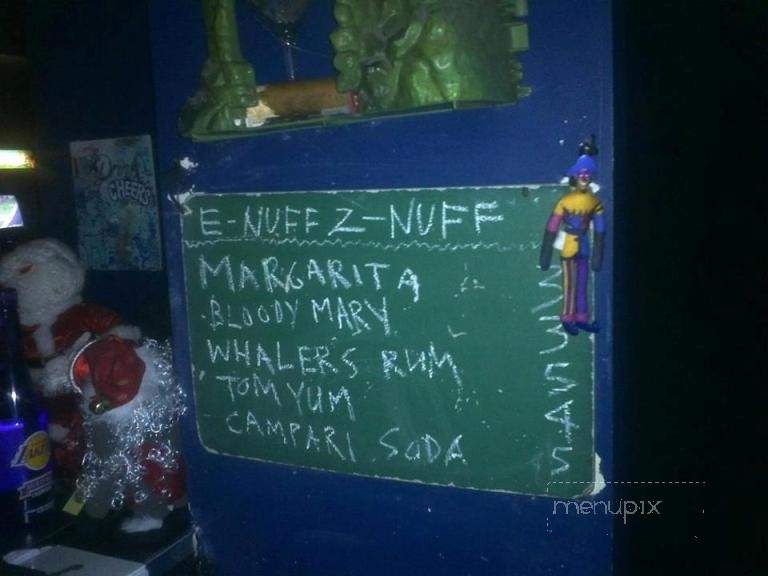 Drink
CHEERS
E-NUFF Z-NUFF
MARGARITA
BLOODY MARY
WHALERS RUM
TOM YUM
CAMPARI SODA
menupix